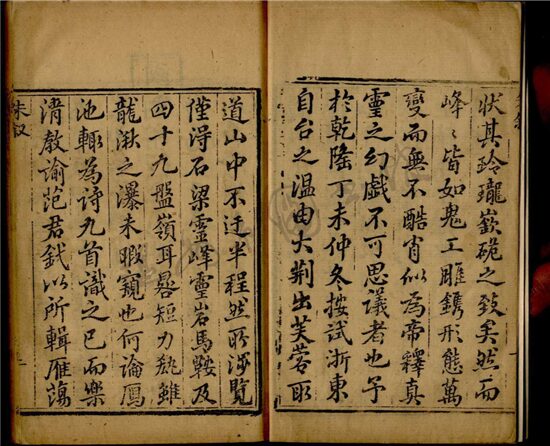 狀其玲瓏嶔硊之致矣然而
峰峰皆如鬼工雕鐫形態萬
變而無不酷肖似為帝釋真
靈之幻戲不可思議者也予
於乾隆丁未仲冬按試浙東
自台之溫由大荆出芙蓉取
道山中不迂半程然所涉覽
僅淂石梁靈峰靈岩馬鞍及
四十九盤嶺耳晷短力疲雖
龍湫之瀑未暇窺也何論鴈
池輙為詩九首識之已而樂
清教諭范君鉽以所輯雁蕩
朱叙